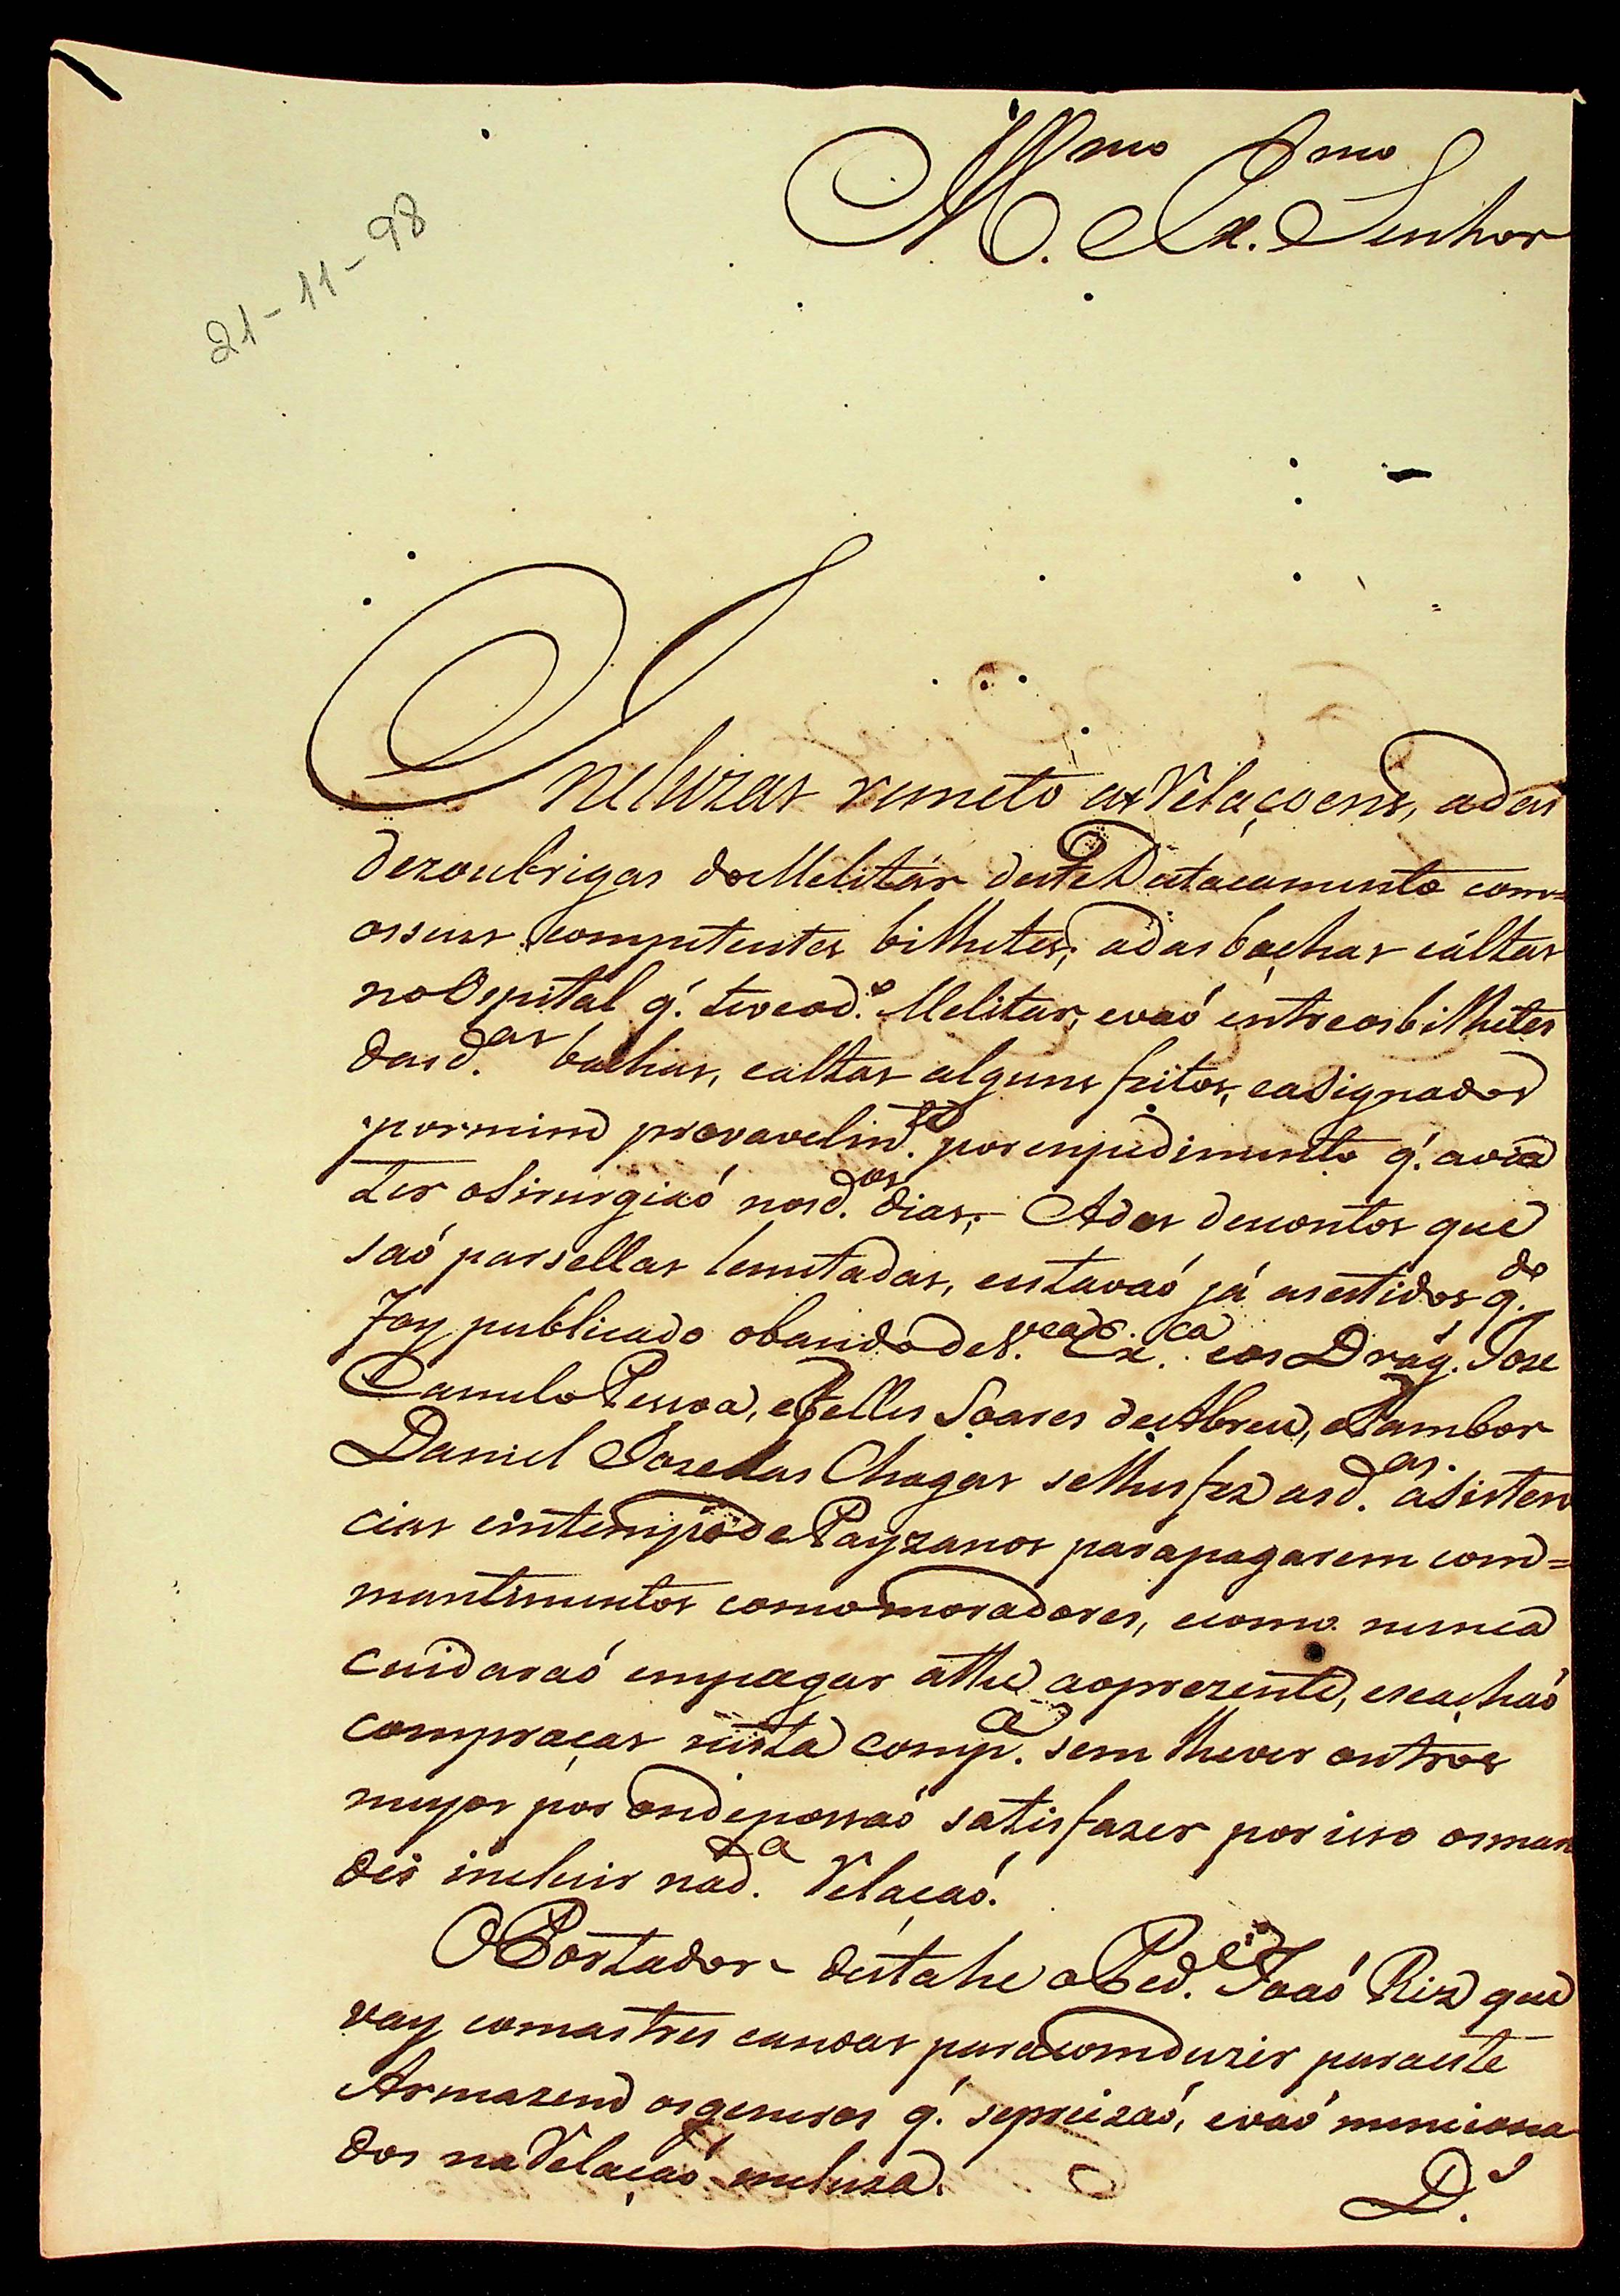 Illmo Exmo
M. O. Ex. Senhor
21-11-98
Incluzas remeto as Relaçoens, adas
dezoubrigas do Melitár deste Destacamento com=
os seus competentes bilhetes, adas bachas e altas
no Ospital q̃. teve o d.º Melitar, e vaó entre os bilhetes
das d.as bachas, e altas alguns feitos, e asignados
por mim por enpedimento q̃. avia
ter o Sirurgiaó nos d.os dias,- Adas descontos que
saó parsellas lemitadas, estavaó já asestidos q.do
foy publicado obando de V.Ex.ca eos Drag. Joze
Camelo Pessoa, e Telles Soares de Abreu, e Tambor
Daniel Joze das Chagas selhes fez as d.as asisten
cias em tempo de Payzanos para pagarem com=
mantimentos como moradores, e como nunca
cuidaraó em pagar athe ao prezente, e se achaó
com praças nesta comp.a sem lhe ver outros
meyos por onde possaó satisfazer por isso os man
dei incluir na d.a Relaçaó.
O Portador- desta he o Ped.e Joaó Riz que
vay com as tres canoas para comduzir para este
Armazem os generos q̃. se precizaó, e vaó menciona
dos na Relaçaó incluza.
D.s